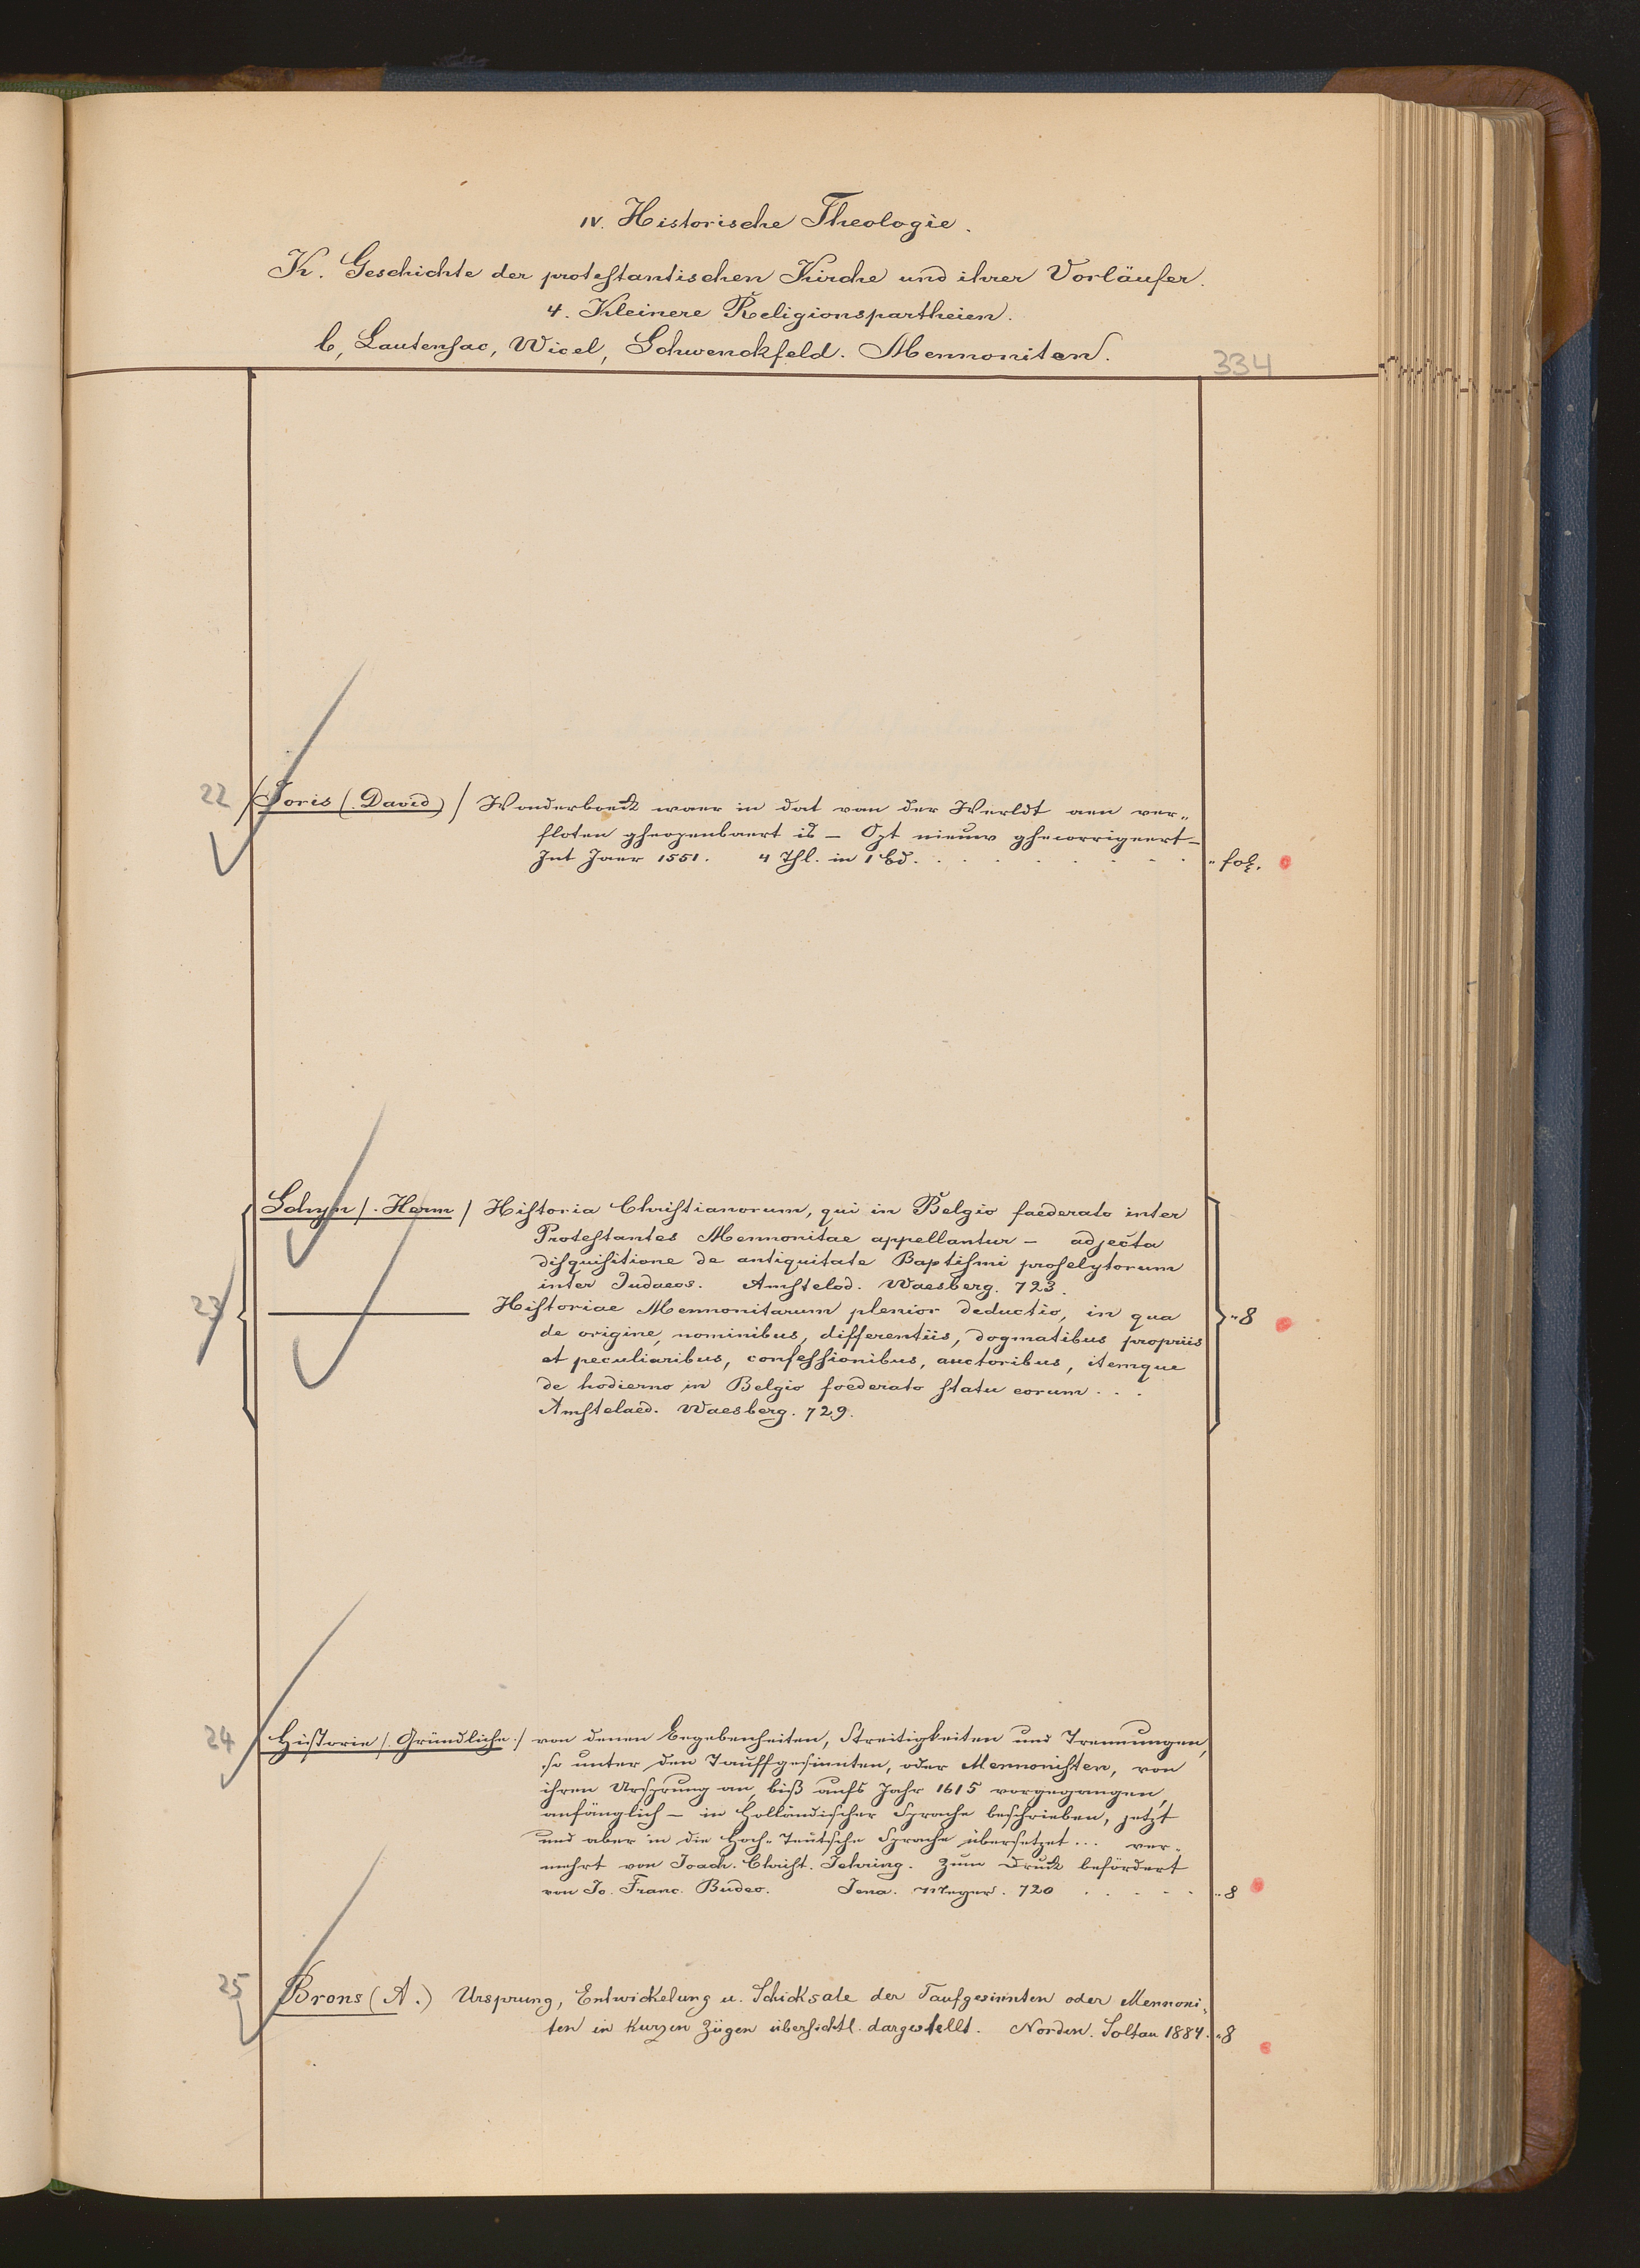 IV. Historische Theologie.
K. Geschichte der protestantischen Kirche und ihrer Vorläufer.
4. Kleinere Religionspartheien.
b, Lautensac, Wicel, Schwenckfeld. Mennoniten.
334
22 Joris (David) / Wonderboeck waer in dat van der Werldt aen ver-
sloten gheopenbaert is — Opt nieuw ghecorrigeert —
Int Jaer 1551. 4 Thl. in 1 Bd. . . . . . . . . " fol.
Schyn /. Herm / Historia Christianorum, qui in Belgio faederato inter
Protestantes Mennonitae appellantur — adjecta
disquisitione de antiquitate Baptismi proselytorum
inter Judaeos. Amstelod. Waesberg. 723.
23 ——— Historiae Mennonitarum plenior deductio, in qua "8
de origine, nominibus, differentiis, dogmatibus propriis
et peculiaribus, confessionibus, auctoribus, itemque
de hodierno in Belgio foederato statu eorum . . .
Amstelaed. Waesberg. 729.
24 Historie /. Gründliche./ von denen Begebenheiten, Streitigkeiten und Trennungen,
so unter den Tauffgesinnten, oder Mennonisten, von
ihren Ursprung an, biß aufs Jahr 1615 vorgegangen,
anfänglich — in Holländischer Sprache beschrieben, jetzt
und aber in die Hoch-Teutsche Sprache übersetzet ... ver-
mehrt von Joach. Christ. Jehring. Zum Druck befördert
von Jo. Franc. Budeo. Jena. Meyer. 720 . . . . . "8
25 Brons (A.) Ursprung, Entwickelung u. Schicksale der Taufgesinnten oder Mennoni-
ten in kurzen Zügen übersichtl. dargestellt. Norden. Soltau 1884. "8